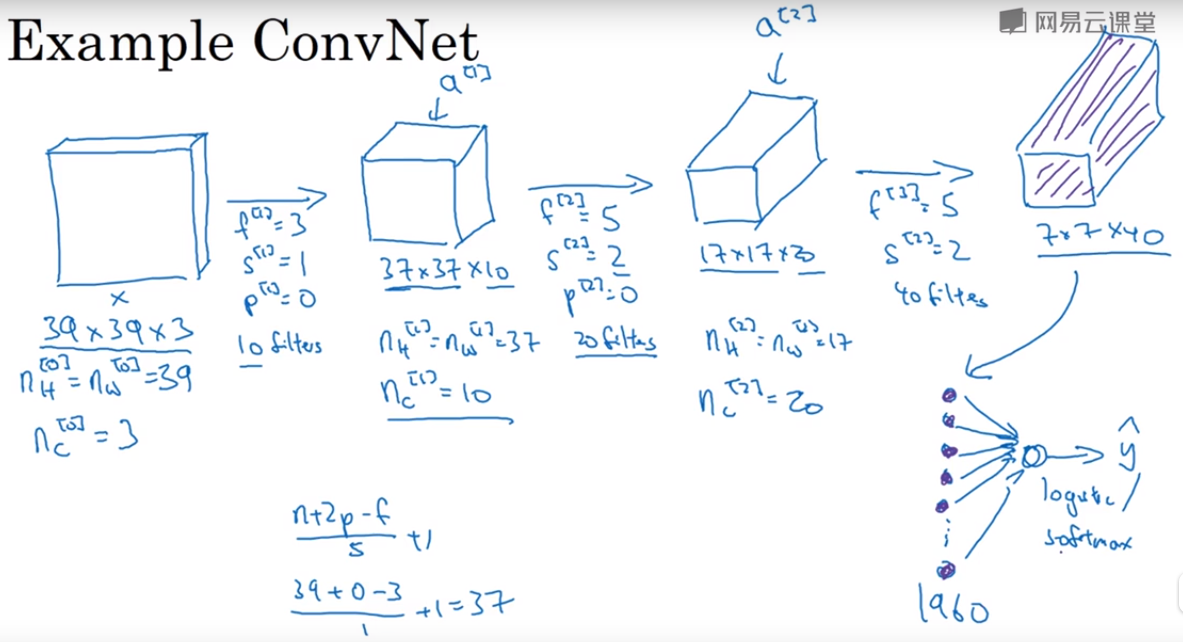 Example ConvNet
网易云课堂
a^[1]
a^[2]
x
39×39×3
n_H^[0] = n_W^[0] = 39
n_C^[0] = 3
f^[1] = 3
s^[1] = 1
p^[1] = 0
10 filters
37×37×10
n_H^[1] = n_W^[1] = 37
n_C^[1] = 10
f^[2] = 5
s^[2] = 2
p^[2] = 0
20 filters
17×17×20
n_H^[2] = n_W^[2] = 17
n_C^[2] = 20
f^[3] = 5
s^[2] = 2
40 filters
7×7×40
1960
ŷ
logistic/
softmax
(n+2p-f)/s +1
(39+0-3)/1 +1 = 37